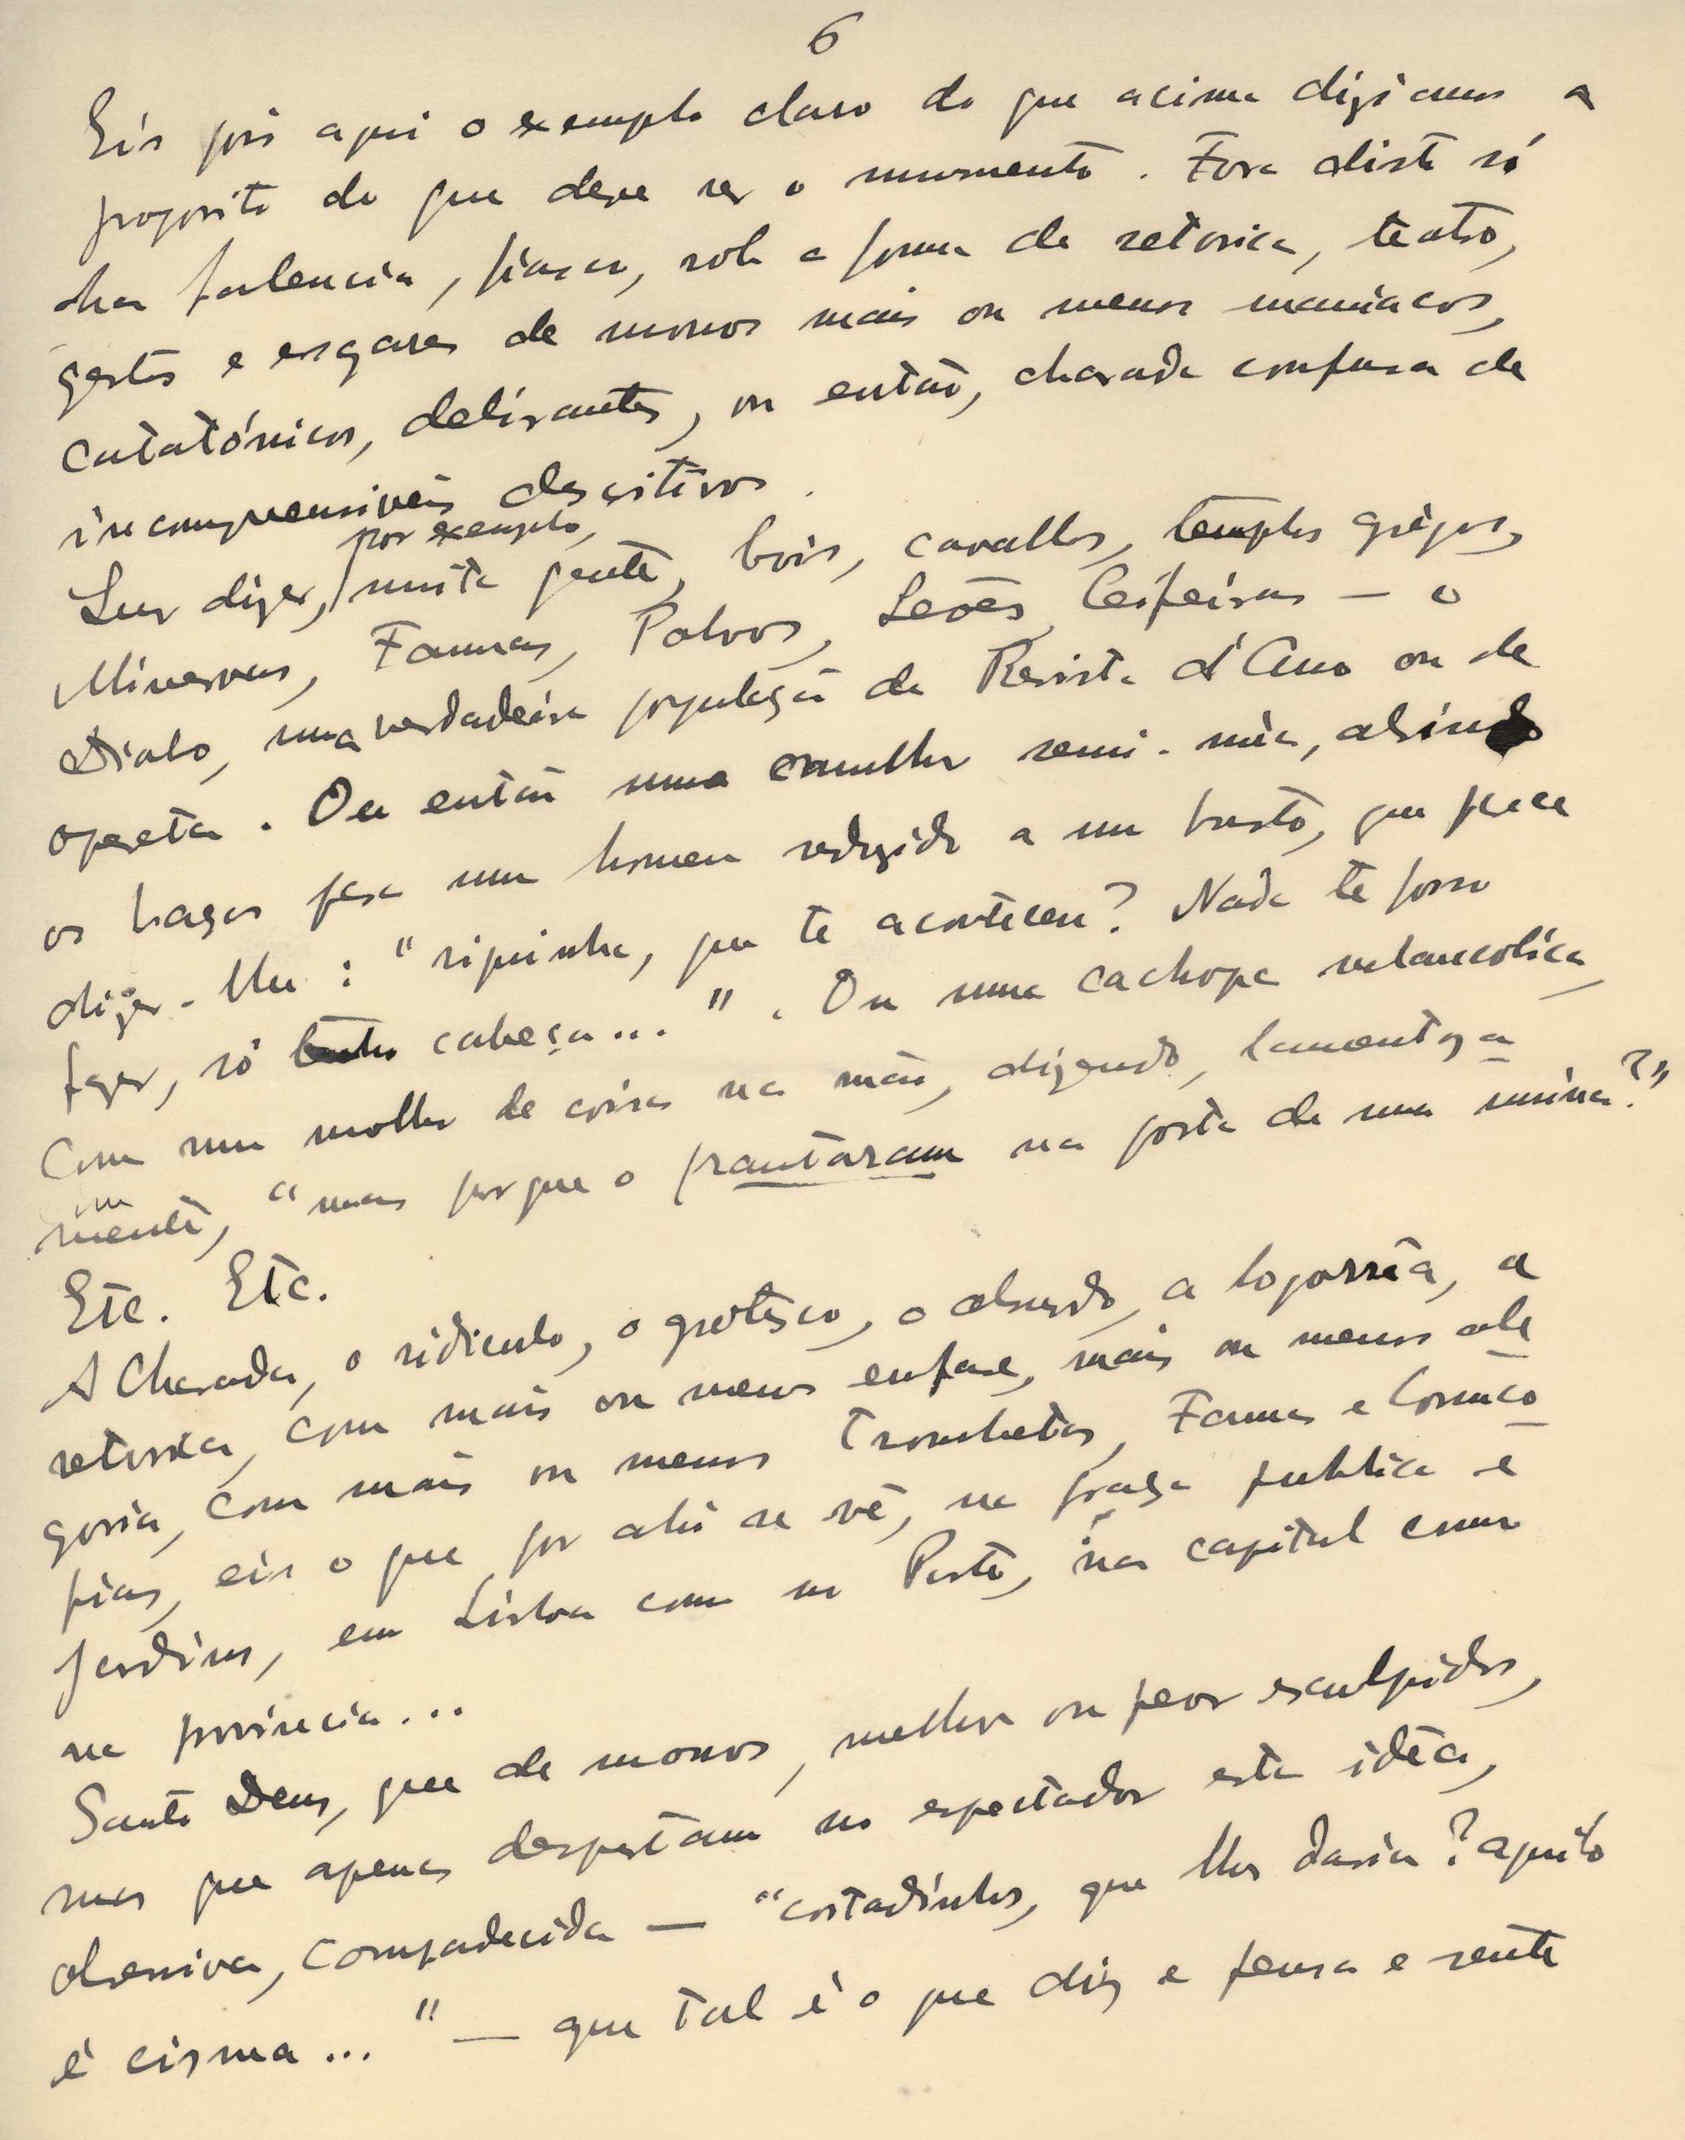 6
Eis pois aqui o exemplo claro do que acima diziamos a
proposito do que deve ser o monumento. Fora disto só
ha falencia, fiasco, sob a forma de retorica, teatro,
gestos e esgares de monos mais ou menos maniacos,
catatónicos, delirantes, ou então, charada confusa de
incomprensiveis descritivos.
por exemplo,
Quer dizer, muita gente, bois, cavallos, templos grêgos,
Minervas, Famas, Polvos, Leões, Ceifeiras — o
Diabo, uma verdadeira população de Revista d'Ano ou de
opereta. Ou então uma mulher semi-núa, abrindo
os braços para um homem reduzido a um busto, que parece
dizer-lhe: "riquinha, que te aconteceu? Nada te posso
fazer, só tenho cabeça..." . Ou uma cachopa melancolica,
com um molho de coisas na mão, dizendo, lamentosa
mente, "mas porque o prantaram na porta de uma mina?"
Etc. Etc.
A Charada, o ridiculo, o grotesco, o absurdo, a logorrêa, a
retorica, com mais ou menos enfase, mais ou menos ale
goria, com mais ou menos trombetas, Famas e Cornuco
pias, eis o que por ahi se vê, na praça publica e
jardins, em Lisboa como no Porto, na capital como
na provincia...
Santo Deus, que de monos, melhor ou peor esculpidos,
mas que apenas despertam no espectador esta idêa,
obsessiva, compadecida — "coitadinhos, que lhes daria? aquilo
é cisma..." — que tal é o que diz e pensa e sente